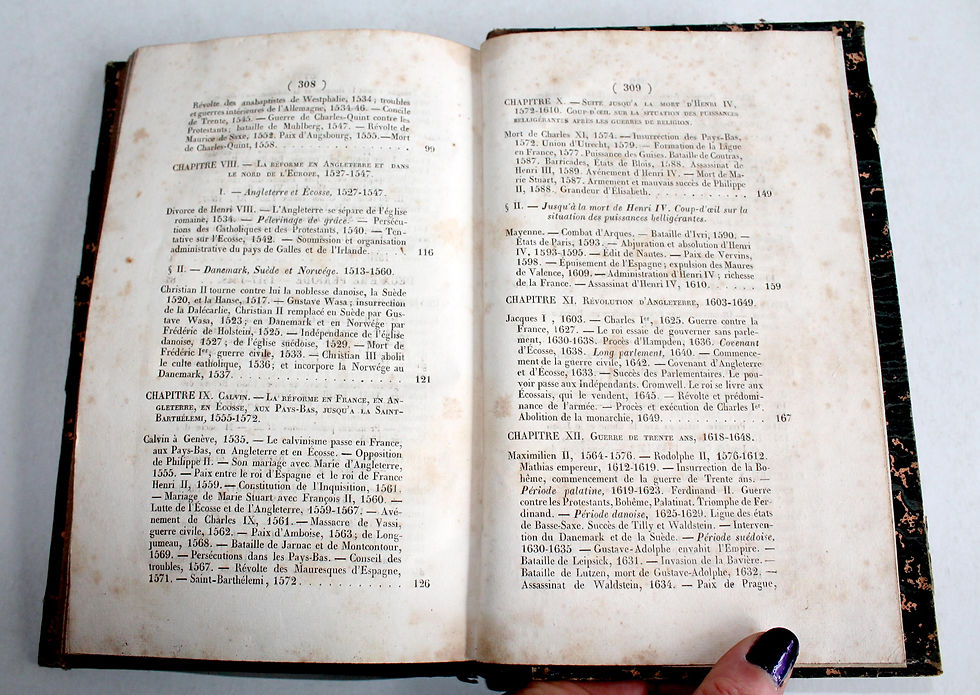 ( 308 )
Révolte des anabaptistes de Westphalie, 1534; troubles
et guerres intérieures de l'Allemagne, 1534-46. — Concile
de Trente, 1545. — Guerre de Charles-Quint contre les
Protestants; bataille de Muhlberg, 1547. — Révolte de
Maurice de Saxe, 1552. Paix d'Augsbourg, 1555. — Mort
de Charles-Quint, 1558. . . . . . . . . . . . . . . . 99
CHAPITRE VIII. — La réforme en Angleterre et dans
le nord de l'Europe, 1527-1547.
I. — Angleterre et Écosse, 1527-1547.
Divorce de Henri VIII. — L'Angleterre se sépare de l'église
romaine, 1534. — Pélerinage de grâce. — Persécu-
tions des Catholiques et des Protestants, 1540. — Ten-
tative sur l'Écosse, 1542. — Soumission et organisation
administrative du pays de Galles et de l'Irlande. . . . . 116
§ II. — Danemark, Suède et Norwége. 1513-1560.
Christian II tourne contre lui la noblesse danoise, la Suède
1520, et la Hanse, 1517. — Gustave Wasa; insurrection
de la Dalécarlie, Christian II remplacé en Suède par Gus-
tave Wasa, 1523; en Danemark et en Norwége par
Frédéric de Holstein, 1525. — Indépendance de l'église
danoise, 1527; de l'église suédoise, 1529. — Mort de
Frédéric Ier, guerre civile, 1533. — Christian III abolit
le culte catholique, 1536; et incorpore la Norwége au
Danemark, 1537. . . . . . . . . . . . . . . . . . 121
CHAPITRE IX. Calvin. — La réforme en France, en An-
gleterre, en Écosse, aux Pays-Bas, jusqu'a la Saint-
Barthélemi, 1555-1572.
Calvin à Genève, 1535. — Le calvinisme passe en France,
aux Pays-Bas, en Angleterre et en Écosse. — Opposition
de Philippe II. — Son mariage avec Marie d'Angleterre,
1555. — Paix entre le roi d'Espagne et le roi de France
Henri II, 1559. — Constitution de l'Inquisition, 1561.
— Mariage de Marie Stuart avec François II, 1560. —
Lutte de l'Écosse et de l'Angleterre, 1559-1567. — Avé-
nement de Charles IX, 1561. — Massacre de Vassi,
guerre civile, 1562. — Paix d'Amboise, 1563; de Long-
jumeau, 1568. — Bataille de Jarnac et de Montcontour,
1569. — Persécutions dans les Pays-Bas. — Conseil des
troubles, 1567. — Révolte des Mauresques d'Espagne,
1571. — Saint-Barthélemi, 1572 . . . . . . . . . . . 126
( 309 )
CHAPITRE X. — Suite jusqu'a la mort d'Henri IV,
1572-1610. Coup-d'œil sur la situation des puissances
belligérantes après les guerres de religion.
Mort de Charles XI, 1574. — Insurrection des Pays-Bas,
1572. Union d'Utrecht, 1579. — Formation de la Ligue
en France, 1577. Puissance des Guises. Bataille de Coutras,
1587. Barricades, États de Blois, 1588. Assassinat de
Henri III, 1589. Avénement d'Henri IV. — Mort de Ma-
rie Stuart, 1587. Armement et mauvais succès de Philippe
II, 1588. Grandeur d'Élisabeth. . . . . . . . . . . . 149
§ II. — Jusqu'à la mort de Henri IV. Coup-d'œil sur la
situation des puissances belligérantes.
Mayenne. — Combat d'Arques. — Bataille d'Ivri, 1590. —
États de Paris, 1593. — Abjuration et absolution d'Henri
IV, 1593-1595. — Édit de Nantes. — Paix de Vervins,
1598. — Épuisement de l'Espagne; expulsion des Maures
de Valence, 1609. — Administration d'Henri IV; richesse
de la France. — Assassinat d'Henri IV, 1610. . . . . . 159
CHAPITRE XI. Révolution d'Angleterre, 1603-1649.
Jacques I , 1603. — Charles Ier, 1625. Guerre contre la
France, 1627. — Le roi essaie de gouverner sans parle-
ment, 1630-1638. Procès d'Hampden, 1636. Covenant
d'Écosse, 1638. Long parlement, 1640. — Commence-
ment de la guerre civile, 1642. — Covenant d'Angleterre
et d'Écosse, 1633. — Succès des Parlementaires. Le pou-
voir passe aux Indépendants. Cromwell. Le roi se livre aux
Écossais, qui le vendent, 1645. — Révolte et prédomi-
nance de l'armée. — Procès et exécution de Charles Ier.
Abolition de la monarchie, 1649. . . . . . . . . . . 167
CHAPITRE XII. Guerre de trente ans, 1618-1648.
Maximilien II, 1564-1576. — Rodolphe II, 1576-1612.
Mathias empereur, 1612-1619. — Insurrection de la Bo-
hême, commencement de la guerre de Trente ans. —
Période palatine, 1619-1623. Ferdinand II. Guerre
contre les Protestants, Bohême, Palatinat. Triomphe de Fer-
dinand. — Période danoise, 1625-1629. Ligue des états
de Basse-Saxe. Succès de Tilly et Waldstein. — Interven-
tion du Danemark et de la Suède. — Période suédoise,
1630-1635 — Gustave-Adolphe envahit l'Empire. —
Bataille de Leipsick, 1631. — Invasion de la Bavière. —
Bataille de Lutzen, mort de Gustave-Adolphe, 1632. —
Assassinat de Waldstein, 1634. — Paix de Prague,